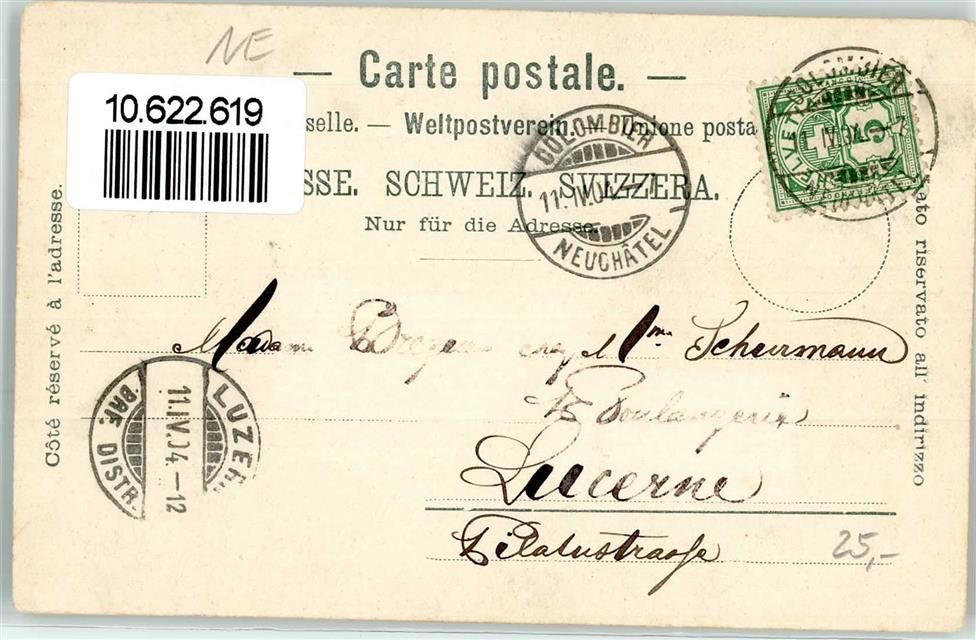 NE
— Carte postale. —
10.622.619
selle. — Weltpostverein. Unione posta
SSE. SCHWEIZ. SVIZZERA.
Nur für die Adresse.
COLOMBIER
11.IV.04
NEUCHÂTEL
COLOMBIER
HELVETIA
5
Côté réservé à l'adresse.
Lato riservato all' indirizzo
Madame chez Mme Scheurmann
Boulangerie
Lucerne
Pilatusstrasse
LUZERN
11.IV.04.–12
BRF. DISTR.
25,-